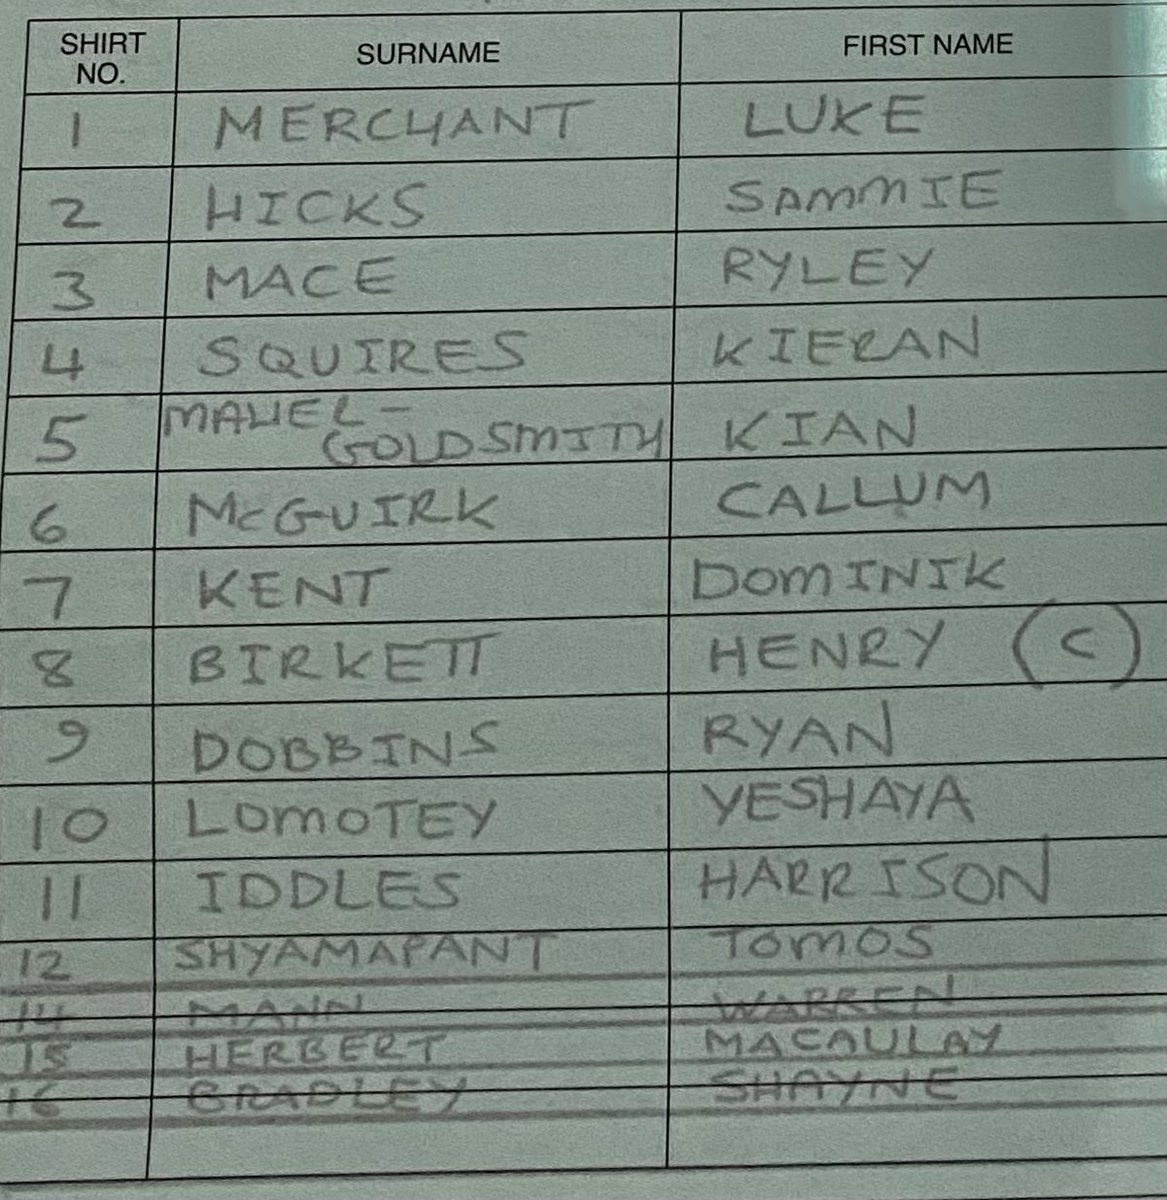 SHIRT NO. SURNAME FIRST NAME
1 MERCHANT LUKE
2 HICKS SAMMIE
3 MACE RYLEY
4 SQUIRES KIERAN
5 MAHER-GOLDSMITH KIAN
6 McGUIRK CALLUM
7 KENT DOMINIK
8 BIRKETT HENRY (C)
9 DOBBINS RYAN
10 LOMOTEY YESHAYA
11 IDDLES HARRISON
12 SHYAMAPANT TOMOS
14 MANN WARREN
15 HERBERT MACAULAY
16 BRADLEY SHAYNE